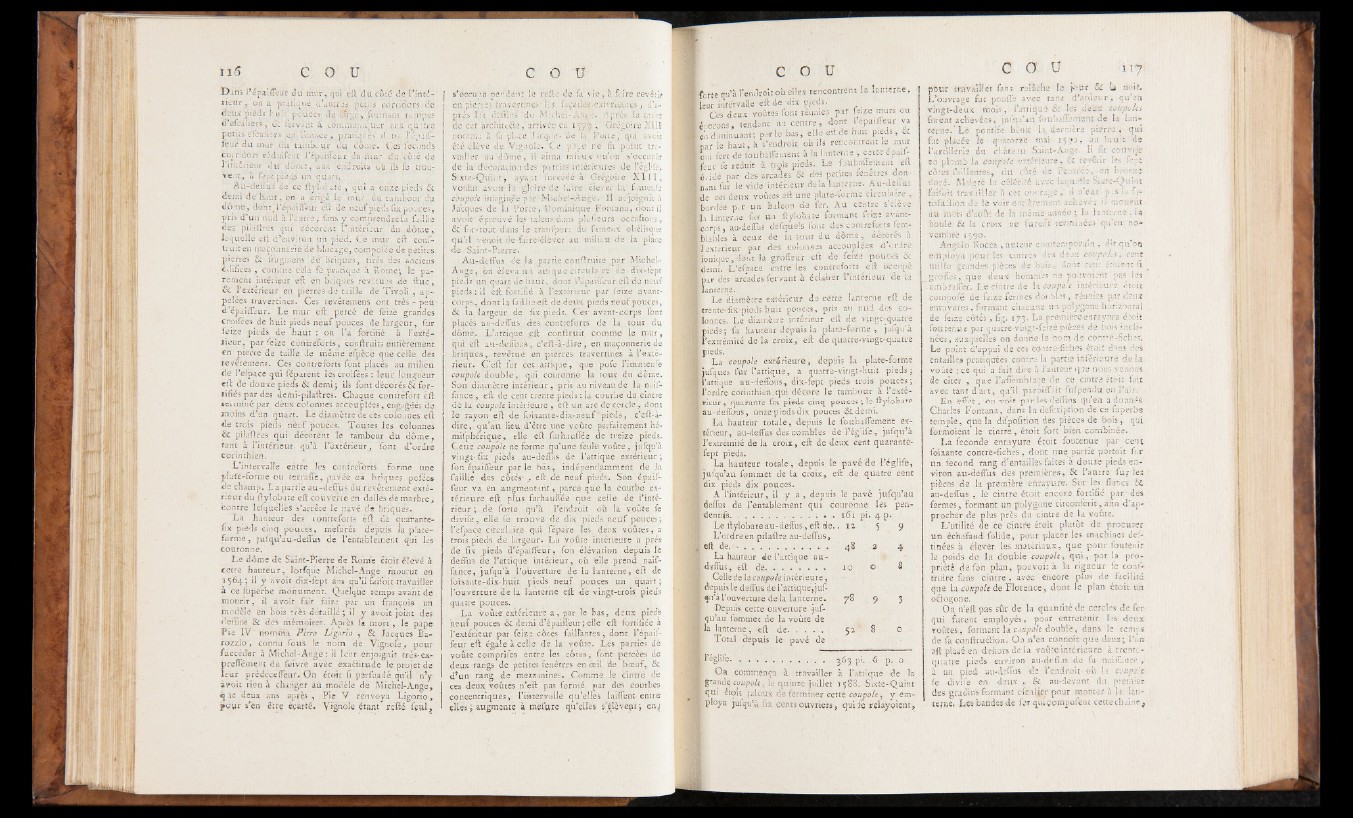 116 C O U
Dans l'épaisseur du mur, qui est du côté de l'inté-
rieur, on a pratiqué d'autres petits corridors de
deux pieds huit pouces de large, formant rampes
d'escaliers, & servant à communiquer aux quatre
petits escaliers en limace, pratiqués dans l'épais-
seur du mur du tambour du dôme. Ces seconds
corridors réduisent l'épaisseur du mur du côté de
l'intérieur du dôme, aux endroits où ils se trou-
vent, à sept pieds un quart.
Au-dessus de ce stylobate, qui a onze pieds &
demi de haut, on a érigé le mur du tambour du
dôme, dont l'épaisseur est de neuf pieds six pouces,
pris d'un nud à l'autre, sans y comprendre la saillie
des pilastres qui décorent l'intérieur du dôme,
laquelle est d'environ un pied. Ce mur est cons-
truit en maçonnerie de blocage, composée de petites
pierres & fragmens de briques, tirés des anciens
édifices, comme cela se pratique à Rome; le pa-
rement intérieur est en briques revêtues de stuc,
& l'extérieur en pierres de taille de Tivoli, ap-
pelées travertines. Ces revêtemens ont très-peu
d'épaisseur. Le mur est percé de seize grandes
croisées de huit pieds neuf pouces de largeur, sur
seize pieds de haut : on l'a fortifié à l'exté-
rieur, par seize contreforts, construits entièrement
en pierre de taille de même espèce que celle des
revêtemens. Ces contreforts sont placés au milieu
de l'espace qui séparent les croisées : leur longueur
est de douze pieds & demi; ils sont décorés & for-
tifiés par des demi-pilastres. Chaque contrefort est
terminé par deux colonnes accouplées, engagées de
moins d'un quart. Le diamètre de ces colonnes est
de trois pieds neuf pouces. Toutes les colonnes
& pilastres qui décorent le tambour du dôme,
tant à l'intérieur qu'à l'extérieur, sont d'ordre
corinthien.
L'intervalle entre les contreforts forme une
plate-forme ou terrasse, pavée en briques posées
de champ. La partie au-dessus du revêtement exté-
rieur du stylobate est couverte en dalles de marbre,
contre lesquelles s'arrête le pavé de briques.
La hauteur des contreforts est de quarante-
six pieds cinq pouces, mesurés depuis la plate-
forme, jusqu'au-dessus de l'entablement qui les
couronne.
Le dôme de Saint-Pierre de Rome étoit élevé à
cette hauteur, lorsque Michel-Ange mourut en
1564; il y avoit dix-sept ans qu'il faisoit travailler
à ce superbe monument. Quelque temps avant de
mourir, il avoit fait faire par un françois un
modèle en bois très détaillé; il y avoit joint des
dessins & des mémoires. Après sa mort, le pape
Pie IV nomma Pirro Ligorio, & Jacques Ba-
rozzio, connu sous le nom de Vignole, pour
succéder à Michel-Ange : il leur enjoignit très-ex-
pressément de suivre avec exactitude le projet de
leur prédécesseur. On étoit si persuadé qu'il n'y
avoit rien à changer au modèle de Michel-Ange,
que deux ans après, Pie V renvoya Ligorio,
pour s'en être écarté. Vignole étant resté seul,
C O U
s'occupa pendant le reste de sa vie, à faire revêtir
en pierres travertines les façades extérieures, d'a-
près les dessins de Michel-Ange. Après la mort
de cet architecte, arrivée en 1573, Grégoire XIII
nomma à sa place Jacques de la Porte, qui avoit
été élève de Vignole. Ce pape ne fit point tra-
vailler au dôme, il aima mieux qu'on s'occupât
de la décoration des parties intérieures de l'église.
Sixte-Quint, ayant succédé à Grégoire XIII,
voulut avoir la gloire de faire élever la fameuse
coupole imaginée par Michel-Ange. Il adjoignit à
Jacques de la Porte, Dominique Fontana, dont il
avoit éprouvé les talens dans plusieurs occasions,
& sur-tout dans le transport du fameux obélisque
qu'il venoit de faire élever au milieu de la place
de Saint-Pierre.
Au-dessus de la partie construite par Michel-
Ange, on éleva un attique circulaire de dix-sept
pieds un quart de haut, dont l'épaisseur est de neuf
pieds : il est fortifié à l'extérieur par seize avant-
corps, dont la saillie est de deux pieds neuf pouces,
& la largeur de six pieds. Ces avant-corps sont
placés au-dessus des contreforts de la tour du
dôme. L'attique est construit comme le mur,
qui est au-dessous, c'est-à-dire, en maçonnerie de
briques, revêtue en pierres travertines à l'exté-
rieur. C'est sur cet attique, que pose l'immense
coupole double, qui couronne la tour du dôme.
Son diamètre intérieur, pris au niveau de la nais-
sance, est de cent trente pieds : la courbe du cintre
de la coupole intérieure, est un arc de cercle, dont
le rayon est de soixante-dix-neuf pieds, c'est-à-
dire, qu'au lieu d'être une voûte parfaitement hé-
misphérique, elle est surhaussée de treize pieds.
Cette coupole ne forme qu'une seule voûte, jusqu'à
vingt-six pieds au-dessus de l'attique extérieur;
son épaisseur par le bas, indépendamment de la
saillie des côtes, est de neuf pieds. Son épais-
seur va en augmentant, parce que la courbe ex-
térieure est plus surhaussée que celle de l'inté-
rieur; de sorte qu'à l'endroit où la voûte se
divise, elle se trouve de dix pieds neuf pouces;
l'espace circulaire qui sépare les deux voûtes, a
trois pieds de largeur. La voûte intérieure a près
de six pieds d'épaisseur, son élévation depuis le
dessus de l'attique intérieur, où elle prend nais-
sance, jusqu'à l'ouverture de la lanterne, est de
soixante-dix-huit pieds neuf pouces un quart;
l'ouverture de la lanterne est de vingt-trois pieds
quatre pouces.
La voûte extérieure a, par le bas, deux pieds
neuf pouces & demi d'épaisseur; elle est fortifiée à
l'extérieur par seize côtes saillantes, dont l'épais-
seur est égale à celle de la voûte. Les parties de
voûte comprises entre les côtes, sont percées de
deux rangs de petites fenêtres en œil de bœuf, &
d'un rang de mezzanines. Comme le cintre de
ces deux voûtes n'est pas formé par des courbes
concentriques, l'intervalle qu'elles laissent entre
elles, augmente à mesure qu'elles s'élèvent; en
C O U
sorte qu'à l'endroit où elles rencontrent la lanterne,
leur intervalle est de dix pieds.
Ces deux voûtes sont réunies par seize murs ou
éperons, tendans au centre, dont l'épaisseur va
en diminuant; par le bas, elle est de huit pieds, &
par le haut, à l'endroit où ils rencontrent le mur
qui sert de soubassement à la lanterne, cette épais-
seur se réduit à trois pieds. Le soubassement est
évidé par des arcades & des petites fenêtres don-
nant sur le vide intérieur de la lanterne. Au-dessus
de ces deux voûtes est une plate-forme circulaire,
bordée par un balcon de fer. Au centre s'élève
la lanterne sur un stylobate formant seize avant-
corps, au-dessus desquels sont des contreforts sem-
blables à ceux de la tour du dôme, décorés à
l'extérieur par des colonnes accouplées d'ordre
ionique, dont la grosseur est de seize pouces &
demi. L'espace entre les contreforts est occupé
par des arcades servant à éclairer l'intérieur de la
lanterne.
Le diamètre extérieur de cette lanterne est de
trente-six pieds huit pouces, pris au nud des co-
lonnes. Le diamètre intérieur est de vingt-quatre
pieds; sa hauteur depuis la plate-forme, jusqu'à
l'extrémité de la croix, est de quatre-vingt-quatre
pieds.
La coupole extérieure, depuis la plate-forme
jusques sur l'attique, a quatre-vingt-huit pieds;
l'attique au-dessous, dix-sept pieds trois pouces;
l'ordre corinthien, qui décore le tambour à l'exté-
rieur, quarante six pieds cinq pouces; le stylobate
au-dessous, onze pieds dix pouces & demi.
La hauteur totale, depuis le soubassement ex-
térieur, au-dessus des combles de l'église, jusqu'à
l'extrémité de la croix, est de deux cent quarante-
sept pieds.
La hauteur totale, depuis le pavé de l'église,
jusqu'au sommet de la croix, est de quatre cent
dix pieds dix pouces.
A l'intérieur, il y a, depuis le pavé jusqu'au
dessus de l'entablement qui couronne les pen-
dentifs. . . . . . . . . . . . . 161 pi. 4 p.
Le stylobate au-dessus, est de. . 12 5 9
L'ordre en pilastre au-dessus,
est de. . . . . . . . . . . . . . 48 2 4
La hauteur de l'attique au-
dessus, est de. . . . . . . . . 10 0 8
Celle de la coupole intérieure,
depuis le dessus de l'attique, jus-
qu'à l'ouverture de la lanterne. 78 9 3
Depuis cette ouverture jus-
qu'au sommet de la voûte de
la lanterne, est de. . . . . . 52 8 0
Total depuis le pavé de
l'église. . . . . . . . . . . . . 363 pi. 6 p. 0
On commença à travailler à l'attique de la
grande coupole, le quinze juillet 1588. Sixte-Quint
qui étoit jaloux de terminer cette coupole, y em-
ploya jusqu'à six cents ouvriers, qui se relayoient,
C O U 117
pour travailler sans relâche le jour & la nuit.
L'ouvrage fut poussé avec tant d'ardeur, qu'en
vingt-deux mois, l'attique & les deux coupoles
furent achevées, jusqu'au soubassement de la lan-
terne. Le pontife bénit la dernière pierre, qui
fut placée le quatorze mai 1590, au bruit de
l'artillerie du château Saint-Ange. Il fit couvrir
en plomb la coupole extérieure, & revêtir les seize
côtes saillantes, du côté de l'entrée, en bronze
doré. Malgré la célérité avec laquelle Sixte-Quint
faisoit travailler à cet ouvrage, il n'eut pas la sa-
tisfaction de le voir entièrement achevé; il mourut
au mois d'août de la même année; la lanterne, la
boule & la croix ne furent terminées qu'en no-
vembre 1590.
Angelo Rocca, auteur contemporain, dit qu'on
employa pour les cintres des deux coupoles, cent
mille grandes pièces de bois, dont cent étoient si
grosses, que deux hommes ne pouvoient pas les
embrasser. Le cintre de la coupole intérieure étoit
composé de seize fermes doubles, réunies par deux
enrayures, formant chacune un polygone horizontal
de seize côtés, fig. 173. La première enrayure étoit
soutenue par quatre-vingt-seize pièces de bois incli-
nées, auxquelles on donne le nom de contre-fiches.
Le point d'appui de ces contre-fiches étoit dans des
entailles pratiquées contre la partie inférieure de la
voûte : ce qui a fait dire à l'auteur que nous venons
de citer, que l'assemblage de ce cintre étoit fait
avec tant d'art, qu'il paroissoit suspendu en l'air.
En effet, on voit par les dessins qu'en a donnés
Charles Fontana, dans la description de ce superbe
temple, que la disposition des pièces de bois, qui
formoient le cintre, étoit fort bien combinée.
La seconde enrayure étoit soutenue par cent
soixante contre-fiches, dont une partie portoit sur
un second rang d'entailles faites à douze pieds en-
viron au-dessus des premières, & l'autre sur les
pièces de la première enrayure. Sur les flancs &
au-dessus, le cintre étoit encore fortifié par des
fermes, formant un polygone circonscrit, afin d'ap-
procher de plus près du cintre de la voûte.
L'utilité de ce cintre étoit plutôt de procurer
un échafaud solide, pour placer les machines des-
tinées à élever les matériaux, que pour soutenir
le poids de la double coupole, qui, par la pro-
priété de son plan, pouvoit à la rigueur se cons-
truire sans cintre, avec encore plus de facilité
que la coupole de Florence, dont le plan étoit un
octogone.
On n'est pas sûr de la quantité de cercles de fer
qui furent employés, pour entretenir les deux
voûtes, formant la coupole double, dans le temps
de sa construction. On n'en connoît que deux; l'un
est placé en dehors de la voûte intérieure à trente-
quatre pieds environ au-dessus de sa naissance,
à un pied au-dessus de l'endroit où la coupole
se divise en deux, & au-devant du premier
des gradins formant escalier pour monter à la lan-
terne. Les bandes de fer qui composent cette chaîne,